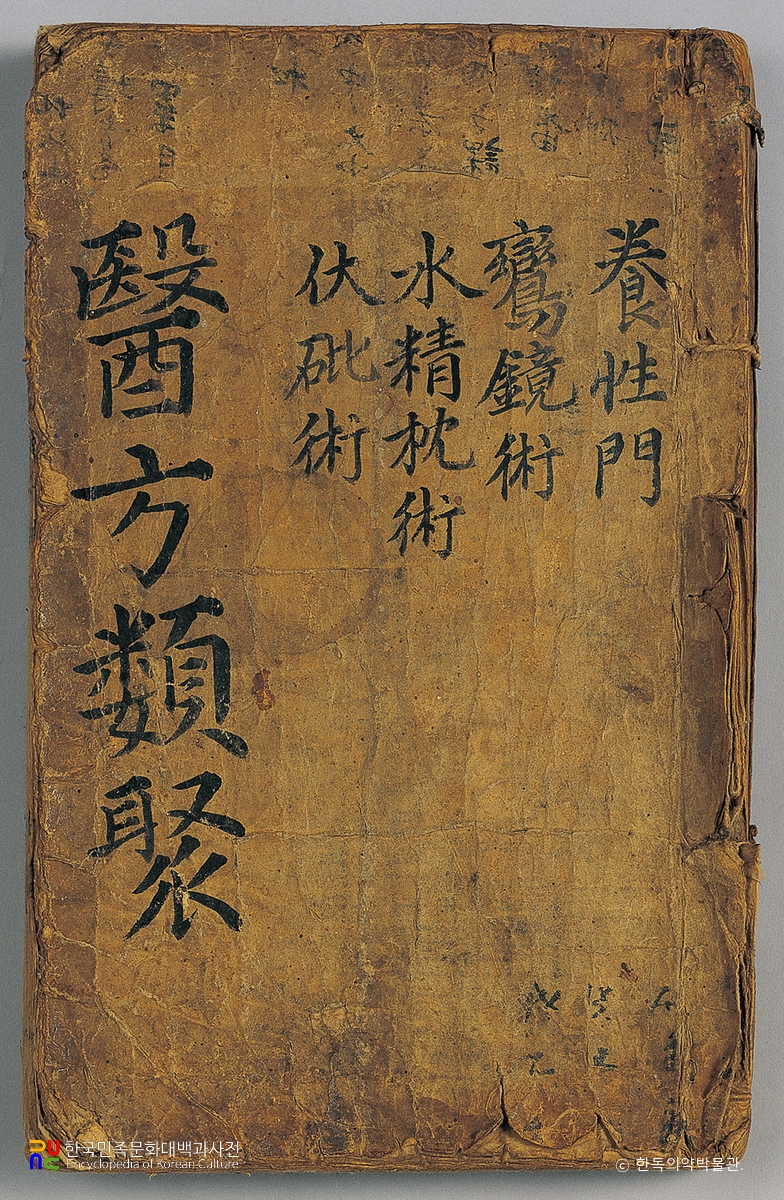 養性門
鸞鏡術
水精枕術
伏砒術
醫方類聚
한국민족문화대백과사전
Encyclopedia of Korean Culture
© 한독의약박물관.